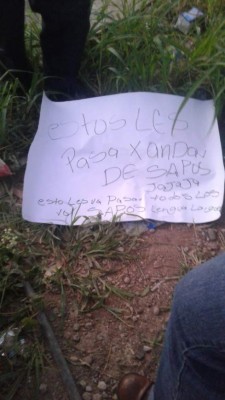 estos LES
Pasa X andan
DE SAPOS
JaJaJa
esto les va Pasar todos Los
SAPOS Lengua Largas